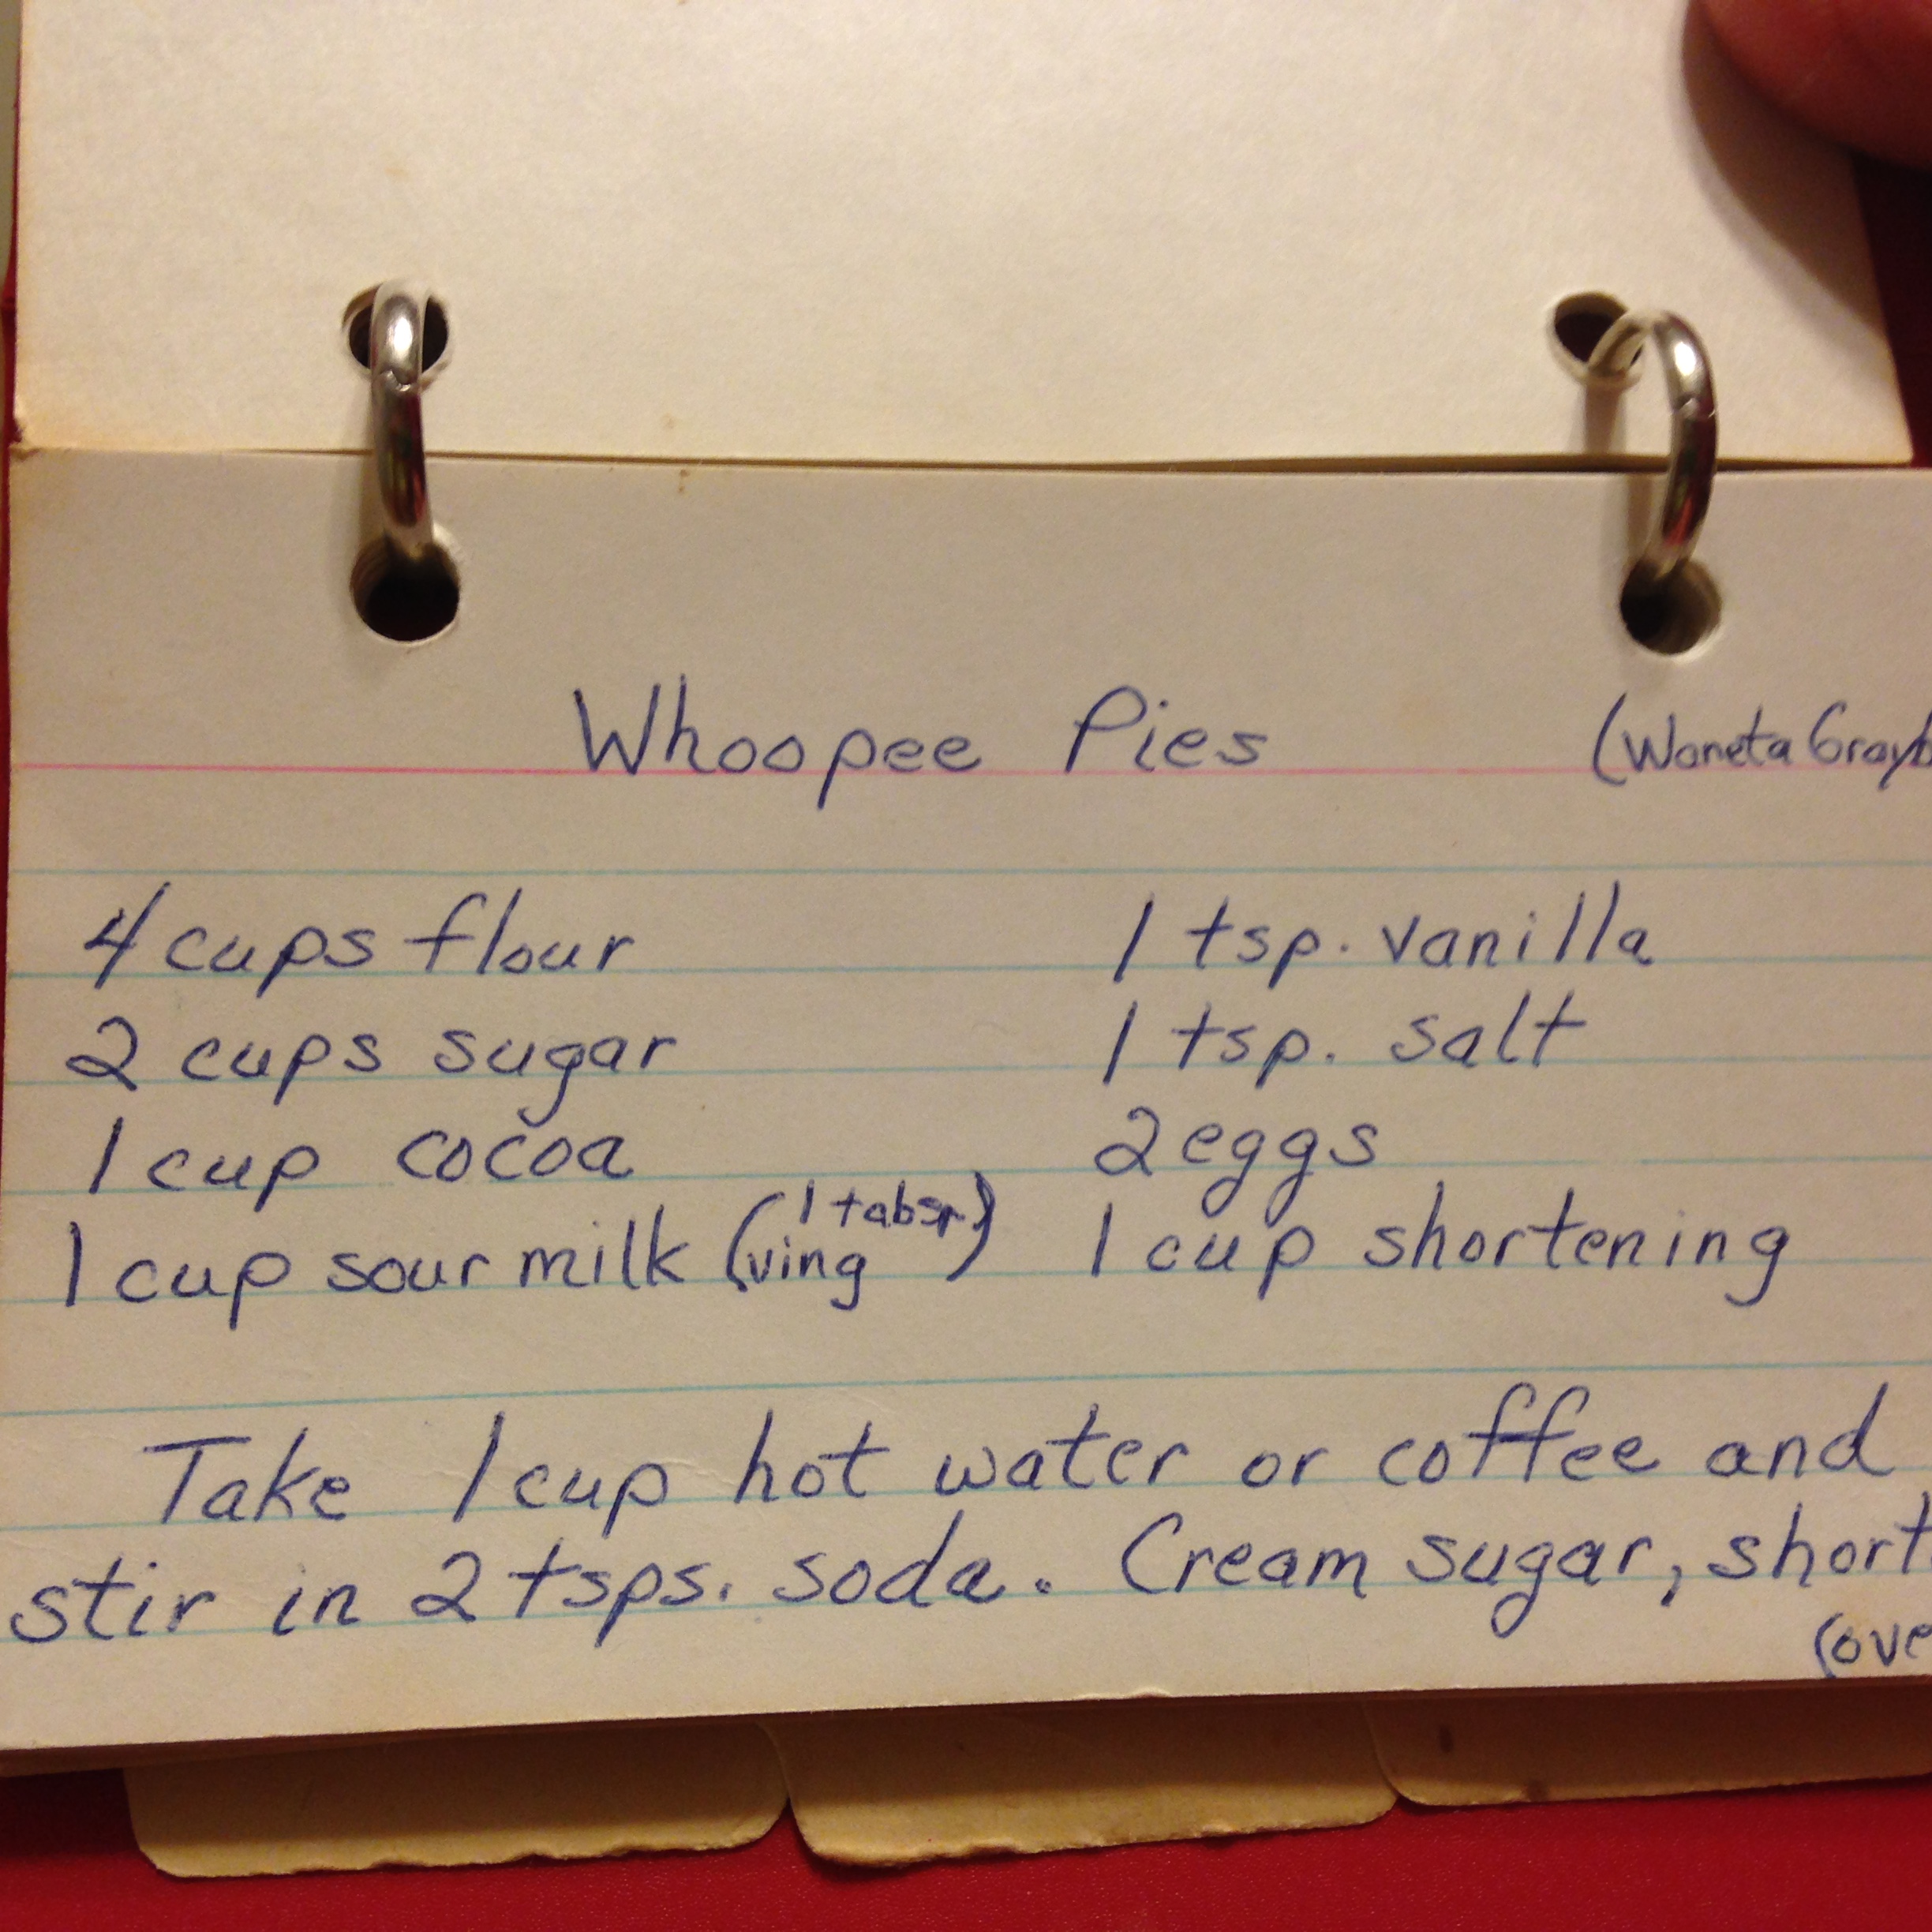 Whoopee Pies (Woneta Grayb
4 cups flour 1 tsp. vanilla
2 cups sugar 1 tsp. salt
1 cup cocoa 2 eggs
1 cup sour milk (1 tabsp. ving) 1 cup shortening
Take 1 cup hot water or coffee and
stir in 2 tsps. soda. Cream sugar, short
(ove